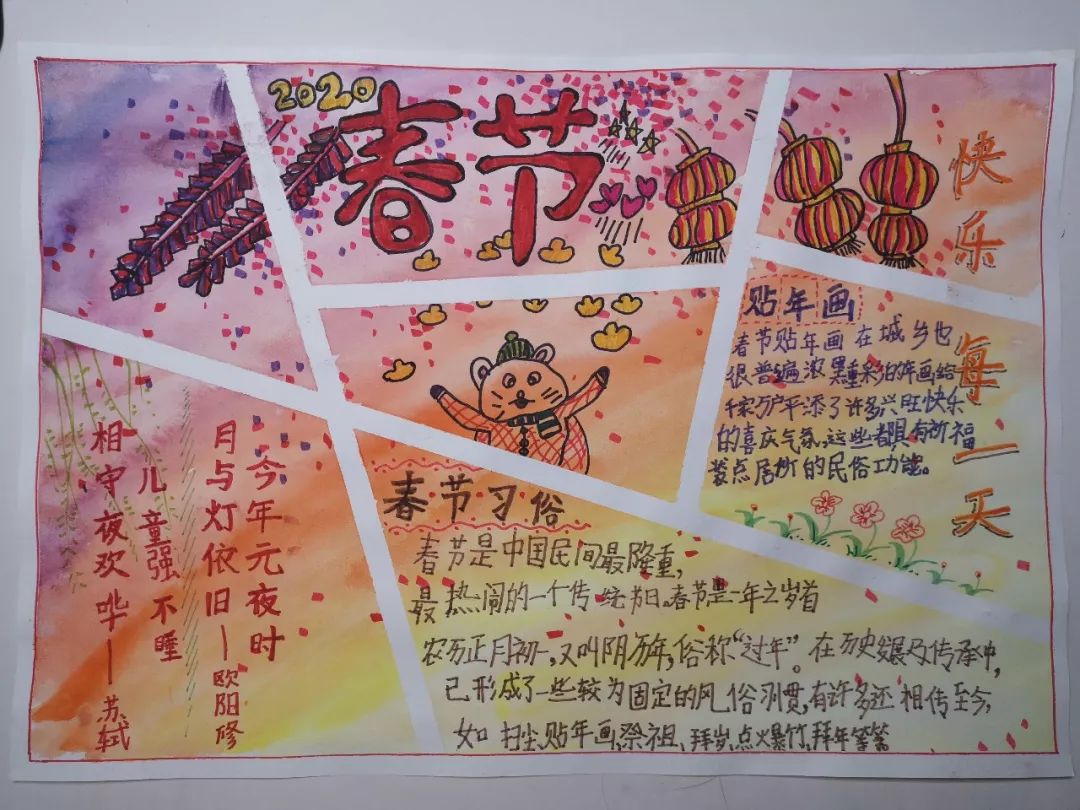 2020
春节
快乐每一天
贴年画
春节贴年画在城乡也
很普遍浓黑重彩的年画给
千家万户平添了许多兴旺快乐
的喜庆气氛,这些都具有祈福
装点居所的民俗功能。
今年元夜时
月与灯依旧——欧阳修
儿童强不睡
相守夜欢哗——苏轼
春节习俗
春节是中国民间最隆重,
最热闹的一个传统节日。春节是一年之岁首
农历正月初一,又叫阴历年,俗称“过年”。在历史发展及传承中,
已形成了一些较为固定的风俗习惯,有许多还相传至今,
如扫尘、贴年画、祭祖、拜岁、点火爆竹、拜年等等